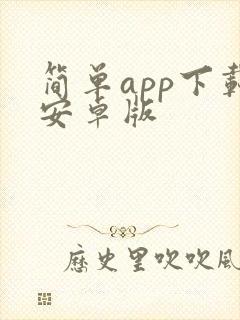 简单app下载
安卓版
歷史里吹吹風